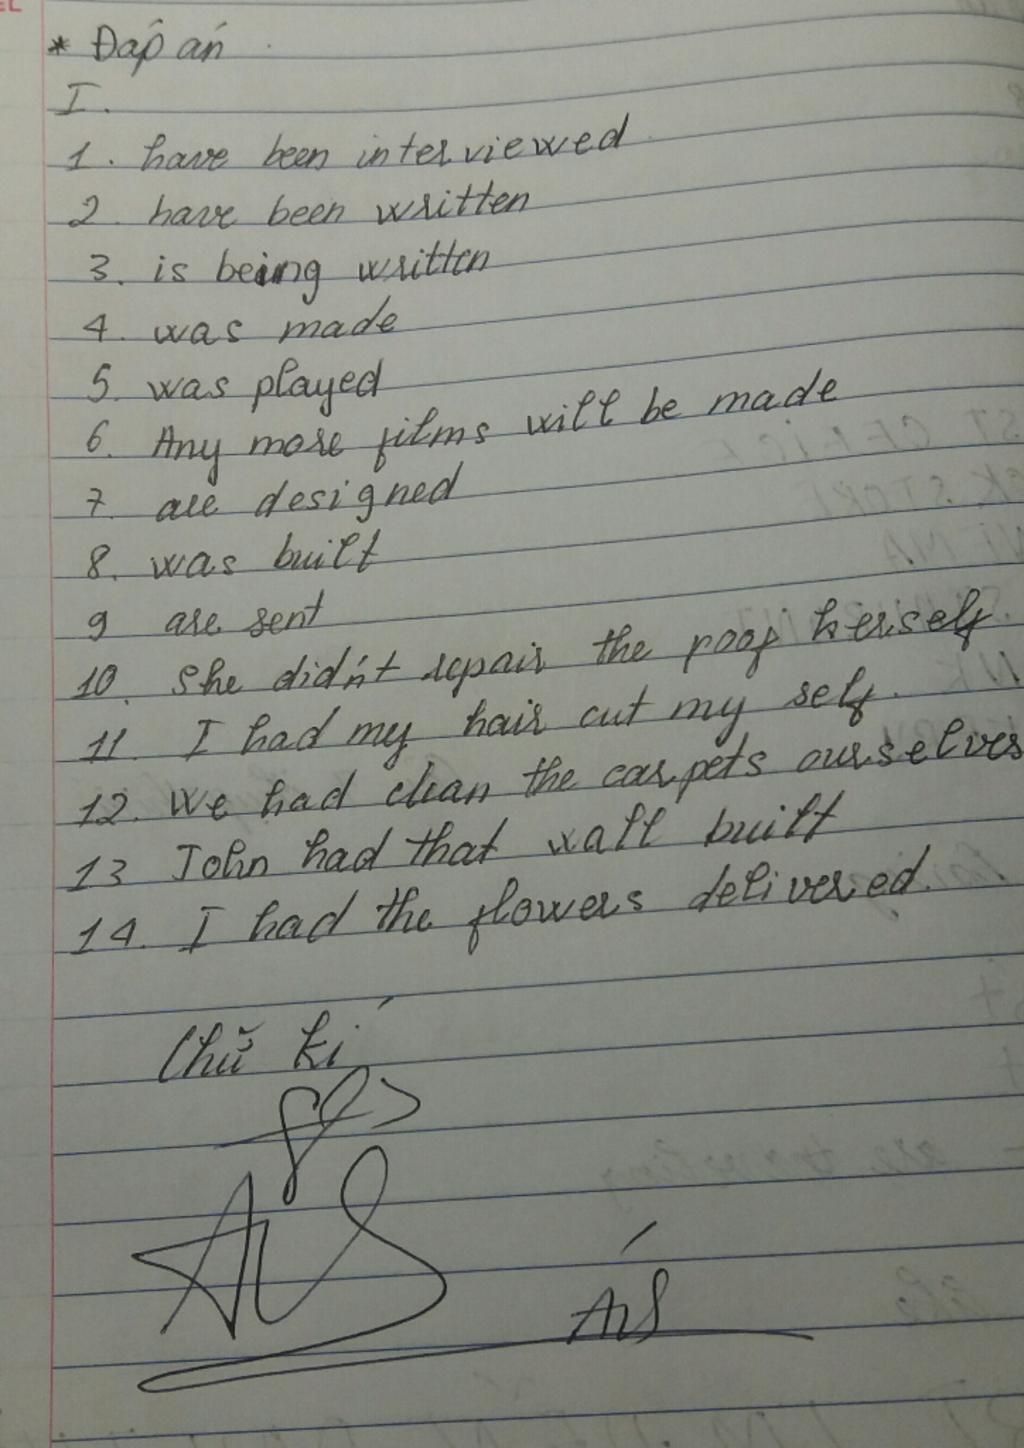 * Đáp án
I.
1. have been interviewed
2. have been written
3. is being written
4. was made
5. was played
6. Any more films will be made
7. are designed
8. was built
9 are sent
10. She didn't repair the roof herself
11. I had my hair cut my self.
12. We had clean the carpets ourselves
13 John had that wall built
14. I had the flowers delivered.
Chữ kí